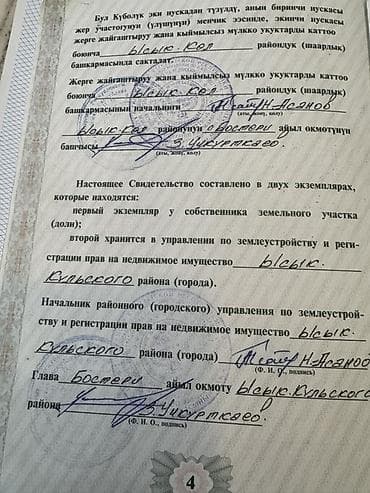 Бул Күбөлүк эки нускадан түзүлдү, анын биринчи нускасы
жер участогунун (үлүшүнүн) менчик ээсинде, экинчи нускасы
жерге жайгаштыруу жана кыймылсыз мүлккө укуктарды каттоо
боюнча Ысык-Көл райондук (шаардык)
башкармасында сакталат.
Жерге жайгаштыруу жана кыймылсыз мүлккө укуктарды каттоо
боюнча Ысык-Көл райондук (шаардык)
башкармасынын начальниги Н-Асанов
(аты, жөнү, колу)
Ысык-Көл районунун Бостери айыл өкмөтүнүн
башчысы
(аты, жөнү, колу)
Настоящее Свидетельство составлено в двух экземплярах,
которые находятся:
первый экземпляр у собственника земельного участка
(доли);
второй хранится в управлении по землеустройству и реги-
страции прав на недвижимое имущество Ысык-
Кульского района (города).
Начальник районного (городского) управления по землеустрой-
ству и регистрации прав на недвижимое имущество Ысык-
Кульского района (города) Н-Асанов
(Ф. И. О., подпись)
Глава Бостери айыл окмоту Ысык-Кульского
района
(Ф. И. О., подпись)
4